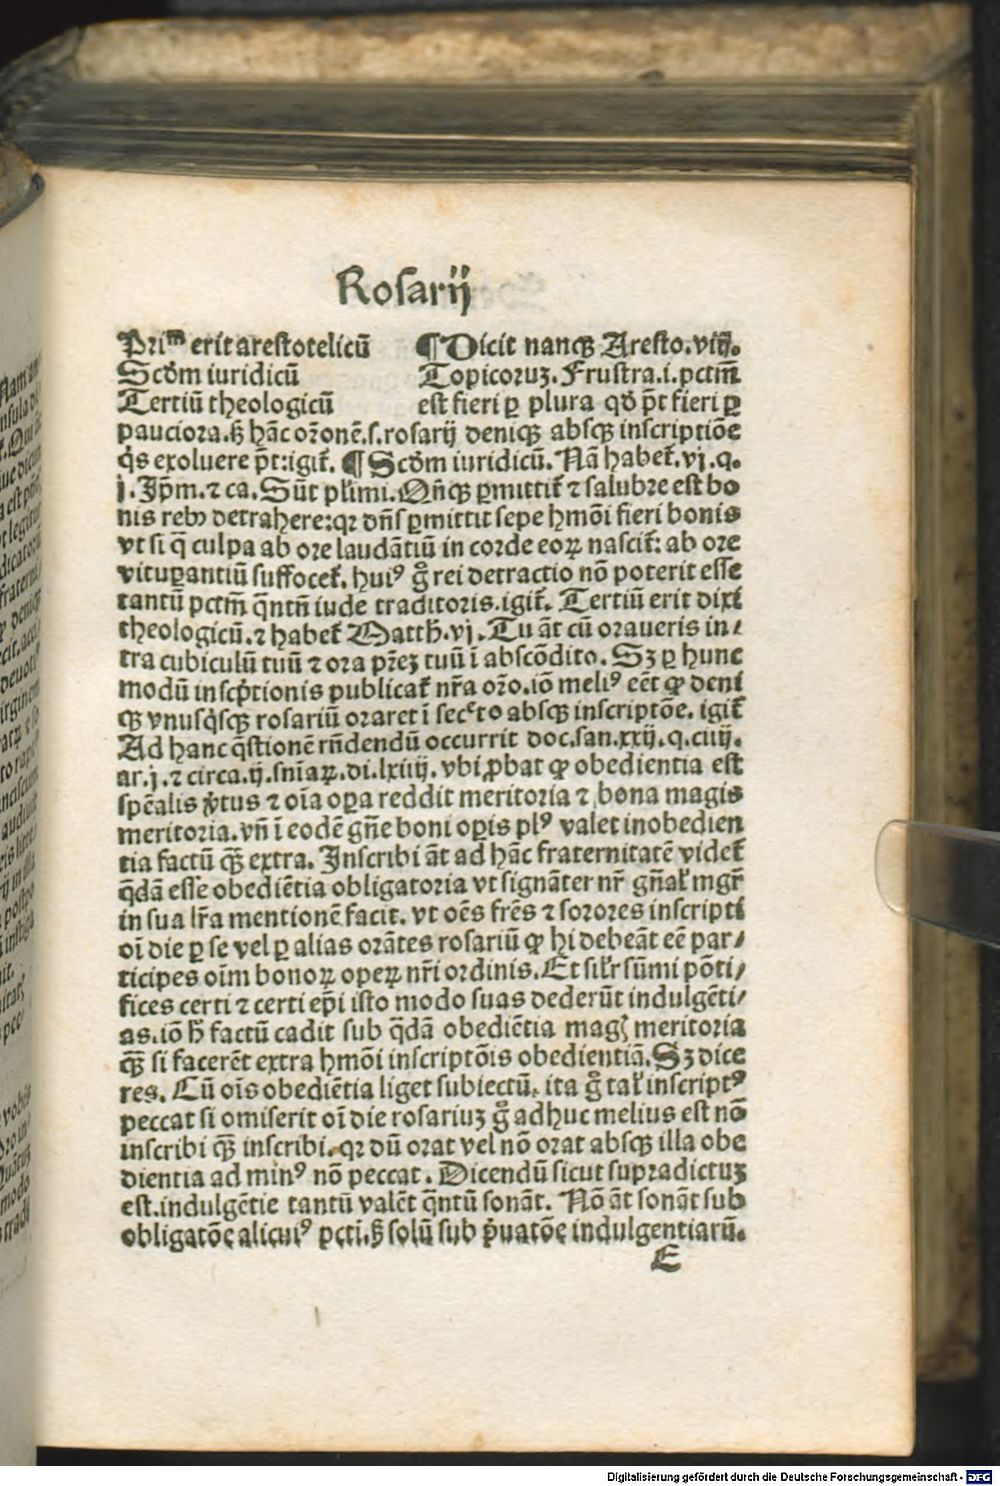 Rosarij
Pri᷒ᵐ erit arestotelicū ¶ Dicit nancꝫ Aresto.viij.
Scd̄m iuridicū Topicoruꝫ. Frustra.i.pctm̄
Tertiū theologicū est fieri ꝑ plura qd̄ pt̄ fieri ꝑ
pauciora.sꝫ hāc orōnē.s.rosarij deniqꝫ absqꝫ inscriptiōe
qͥs exoluere pt̄:igit̉. ¶ Scd̄m iuridicū. Nā habet̉.vj.q.
j. Jpm̄.⁊ ca. Sūt pl̉imi. Qn̄qꝫ ꝑmittit̉ ⁊ salubre est bo
nis rebꝰ detrahere:qꝛ dn̄s ꝑmittit sepe hmōi fieri bonis
vt si q̄ culpa ab ore laudātiū in corde eoꝝ nascit̉: ab ore
vituꝑantiū suffocet̉. huiꝰ g̊ rei detractio nō poterit esse
tantū pctm̄ q̄ntū iude traditoris.igit̉. Tertiū erit dixi
theologicū.⁊ habet̉ Matth̄.vj. Tu āt cū oraueris in/
tra cubiculū tuū ⁊ ora pr̄eꝫ tuū ī abscōdito. Sꝫ ꝑ hunc
modū inscp̄tionis publicat̉ nr̄a orō.iō meliꝰ eēt ꝙ deni
qꝫ vnusqͥsqꝫ rosariū oraret ī secᵉto absqꝫ inscriptōe. igit̉
Ad hanc q̄stionē rn̄dendū occurrit doc.san.xxij.q.ciiij.
ar.j.⁊ circa.ij.sniaꝝ.di.lxiiij.vbi ꝓbat ꝙ obedientia est
spēalis v̓tus ⁊ oīa oꝑa reddit meritoria ⁊ bona magis
meritoria.vn̄ ī eodē gn̄e boni oꝑis plꝰ valet inobedien
tia factū qꝫ̄ extra. Inscribi āt ad hāc fraternitatē videt̉
q̄dā esse obediētia obligatoria vt signāter nr̄ gn̄al̉ mgr̄
in sua lr̄a mentionē facit. vt oēs frēs ⁊ sorores inscripti
oī die ꝑ se vel ꝑ alias orātes rosariū ꝙ hi debeāt eē par/
ticipes oīm bonoꝝ opeꝝ nr̄i ordinis. Et sil̉r sūmi pōti/
fices certi ⁊ certi ep̄i isto modo suas dederūt indulgēti/
as.iō h̄ factū cadit sub q̄dā obediētia magꝭ meritoria
qꝫ̄ si facerēt extra hmōi inscriptōis obedientiā. Sꝫ dice
res. Cū oīs obediētia liget subiectū, ita g̊ tal̉ inscriptꝰ
peccat si omiserit oī die rosariuꝫ g̊ adhuc melius est nō
inscribi qꝫ̄ inscribi.qꝛ dū orat vel nō orat absqꝫ illa obe
dientia ad minꝰ nō peccat. Dicendū sicut supradictuꝫ
est.indulgētie tantū valēt q̄ntū sonāt. Nō āt sonāt sub
obligatōe alicuiꝰ pcti.sꝫ solū sub pͥuatōe indulgentiarū.
E
Digitalisierung gefördert durch die Deutsche Forschungsgemeinschaft - DFG